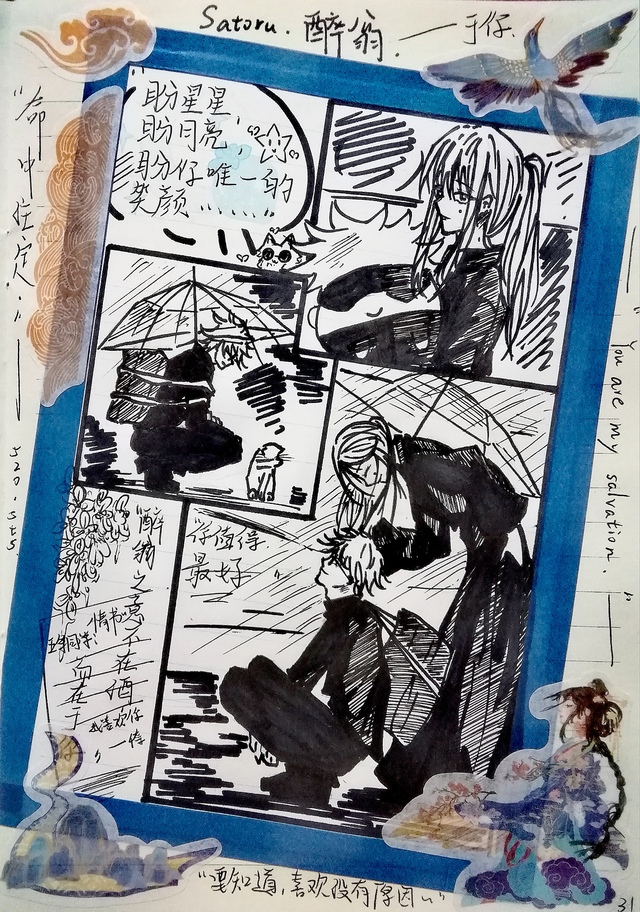 Satoru. 醉翁. 一于仔.
"命中注定"
520. sts.
"盼星星,
盼月亮,
盼仔唯一的
笑颜......
"you are my salvation."
"仔值得
最好"
"醉翁之意不在酒
而在于仔"
情书
同学:
我喜欢你
"要知道,喜欢没有原因"
31